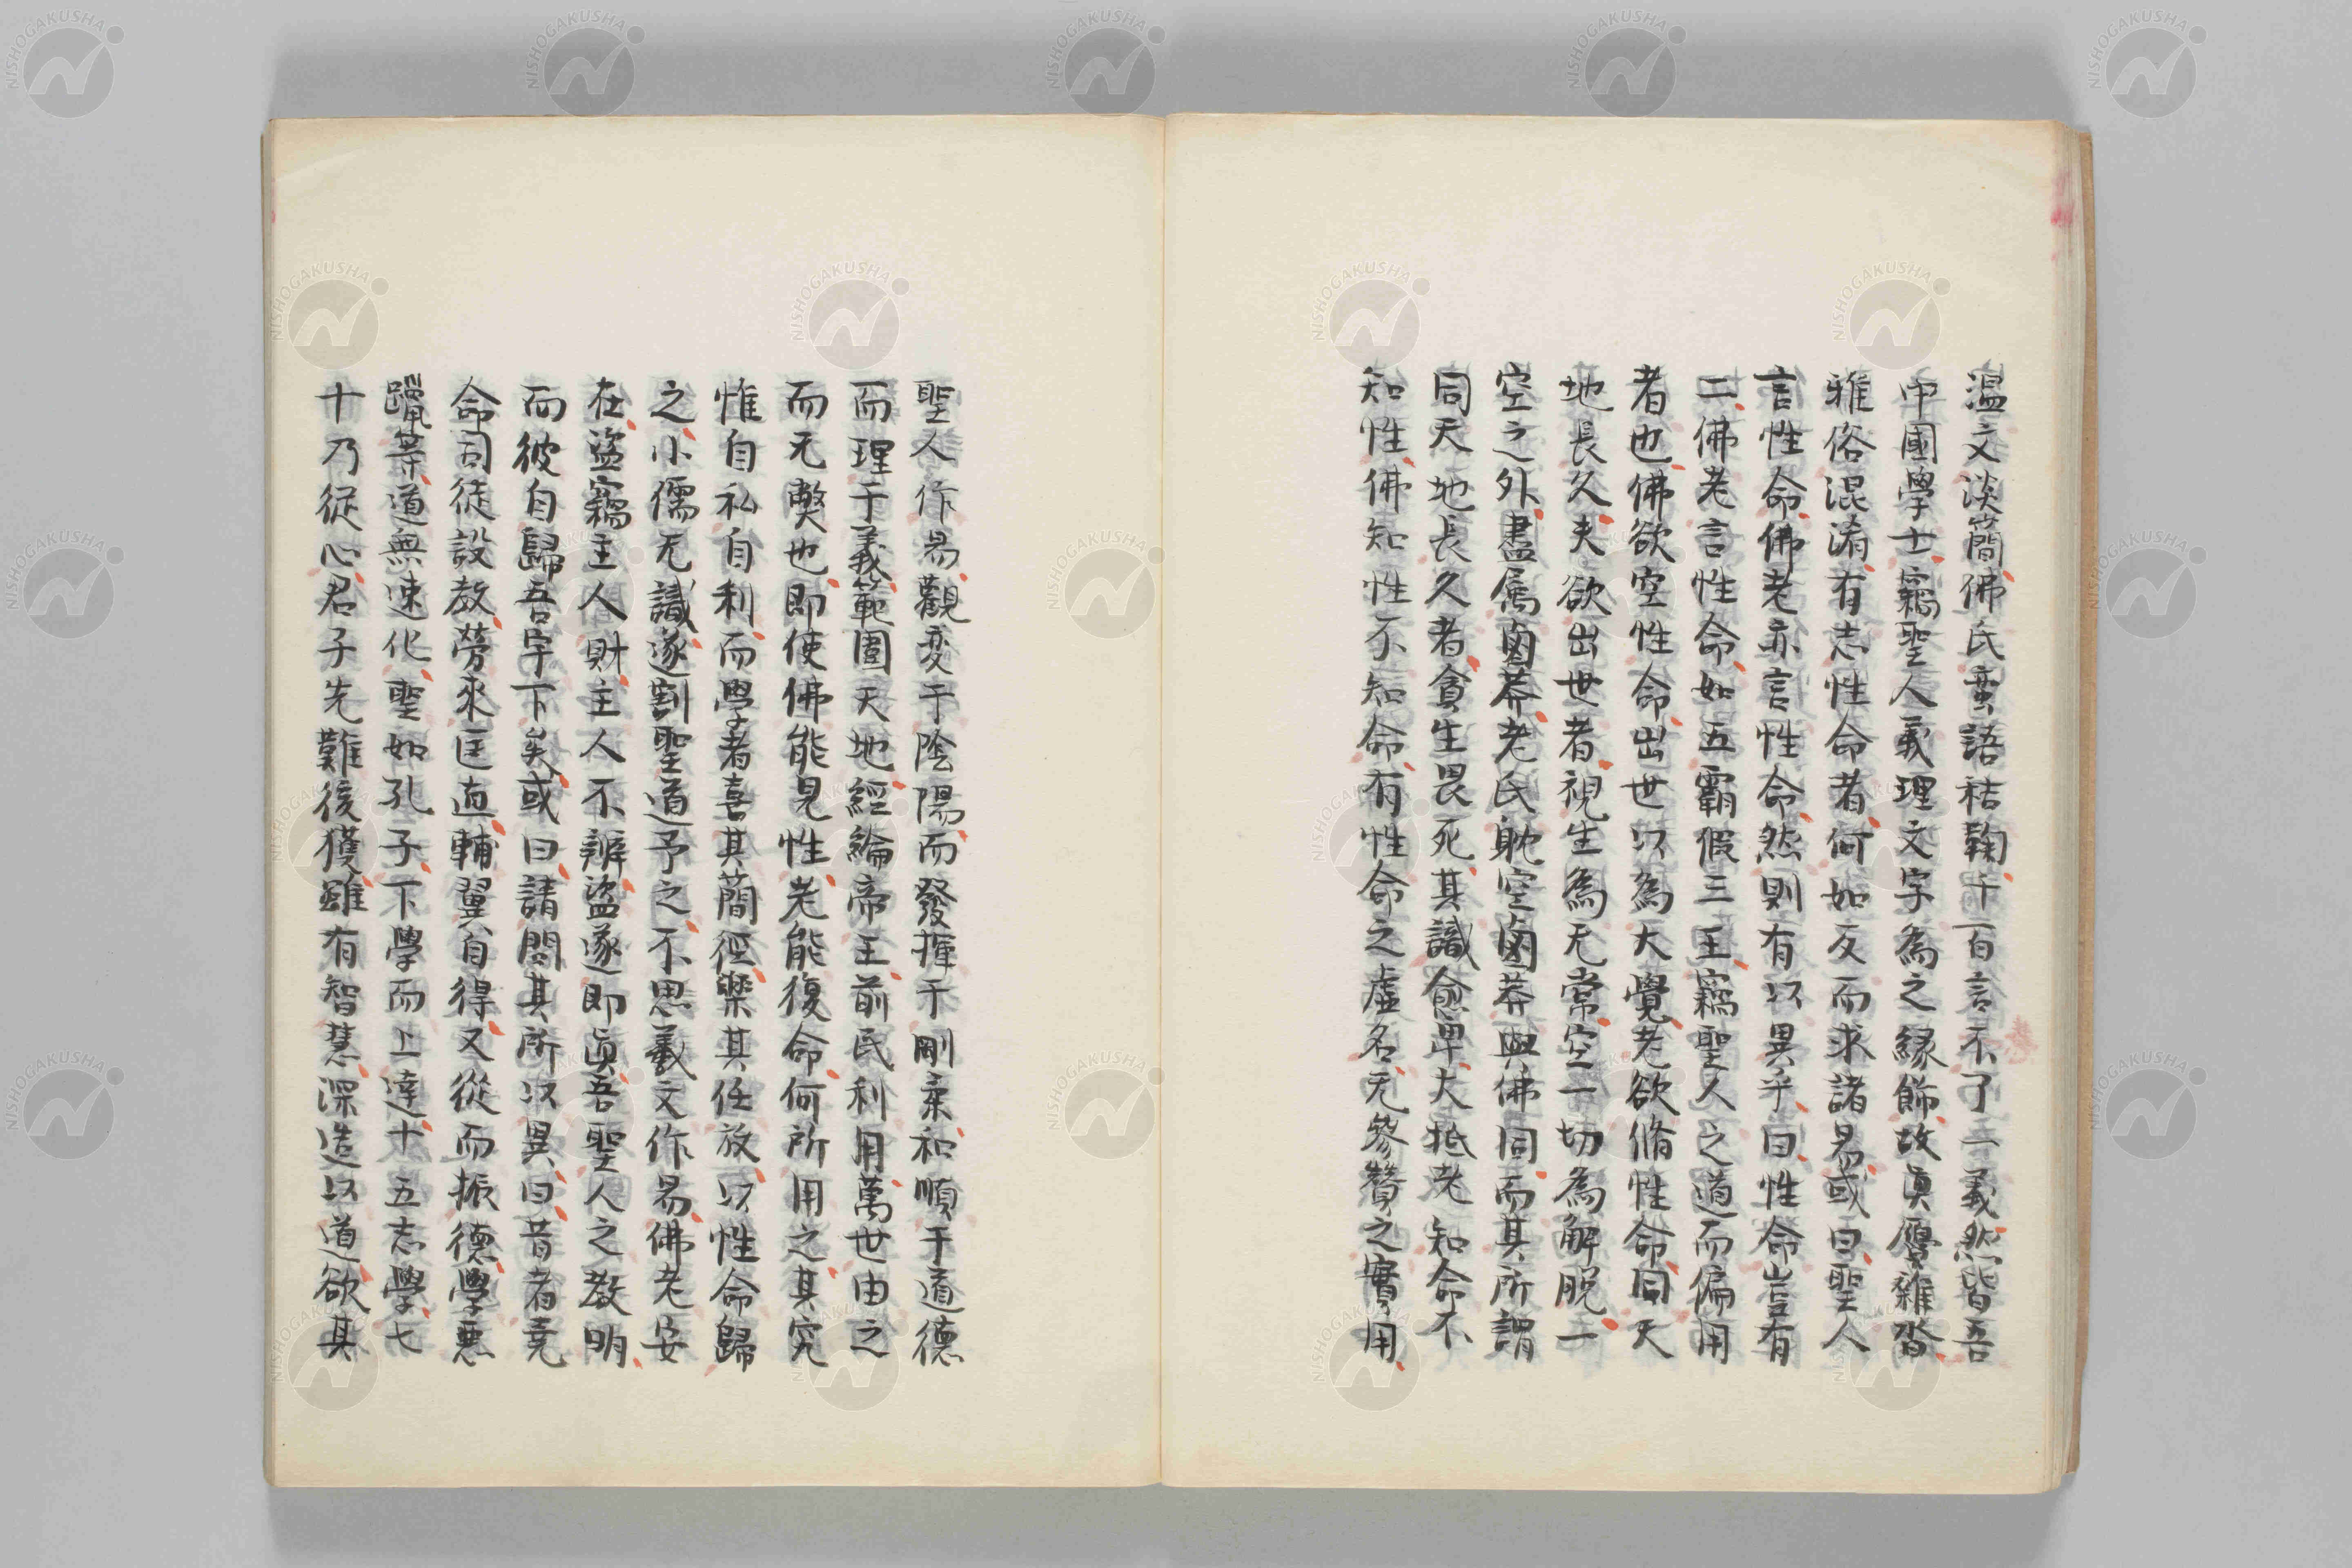 温文淡簡佛氏蛮語秸鞠千百言不了一義然皆吾
中國學士竊聖人義理文字為之緣飾故真贗雜沓
雅俗混淆有志性命者何如反而求諸易或曰聖人
言性命佛老亦言性命然則有以異乎曰性命豈有
二佛老言性命如五霸假三王竊聖人之道而偏用
者也佛欲空性命出世以為大覺老欲脩性命同天
地長久夫欲出世者視生為无常空一切為解脫一
空之外盡属鹵莽老氏躭空鹵莽與佛同而其所謂
同天地長久者貪生畏死其識愈卑大抵老知命不
知性佛知性不知命有性命之虛名无參贊之實用
聖人作易觀变于陰陽而發揮于剛柔和順于道德
而理于義範圍天地經綸帝王前民利用萬世由之
而无獘也即使佛能見性老能復命何所用之其究
惟自私自利而學者喜其簡徑樂其任放以性命歸
之小儒无識遂割聖道予之不思羲文作易佛老安
在盜竊主人財主人不辨盜遂即真吾聖人之教明
而彼自歸吾宇下矣或曰請問其所以異曰昔者堯
命司徒設教勞來匡直輔翼自得又從而振德學惡
躐等道無速化聖如孔子下學而上達十五志學七
十乃從心君子先難後獲雖有智慧深造以道欲其
NISHOGAKUSHA